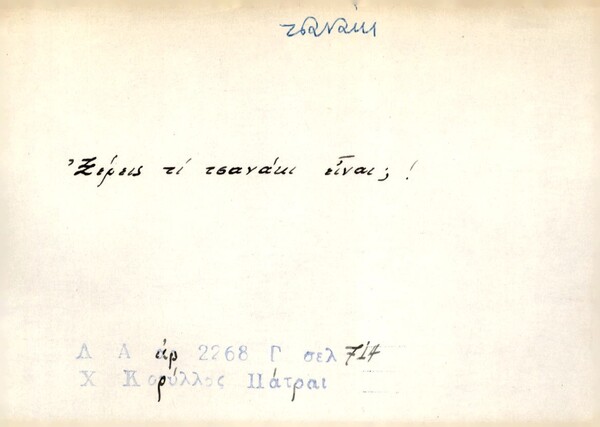 τσανάκι
Ξέρεις τί τσανάκι εἶναι; !
Λ Α ἀρ 2268 Γ σελ 714
Χ Κορύλλος Πάτραι